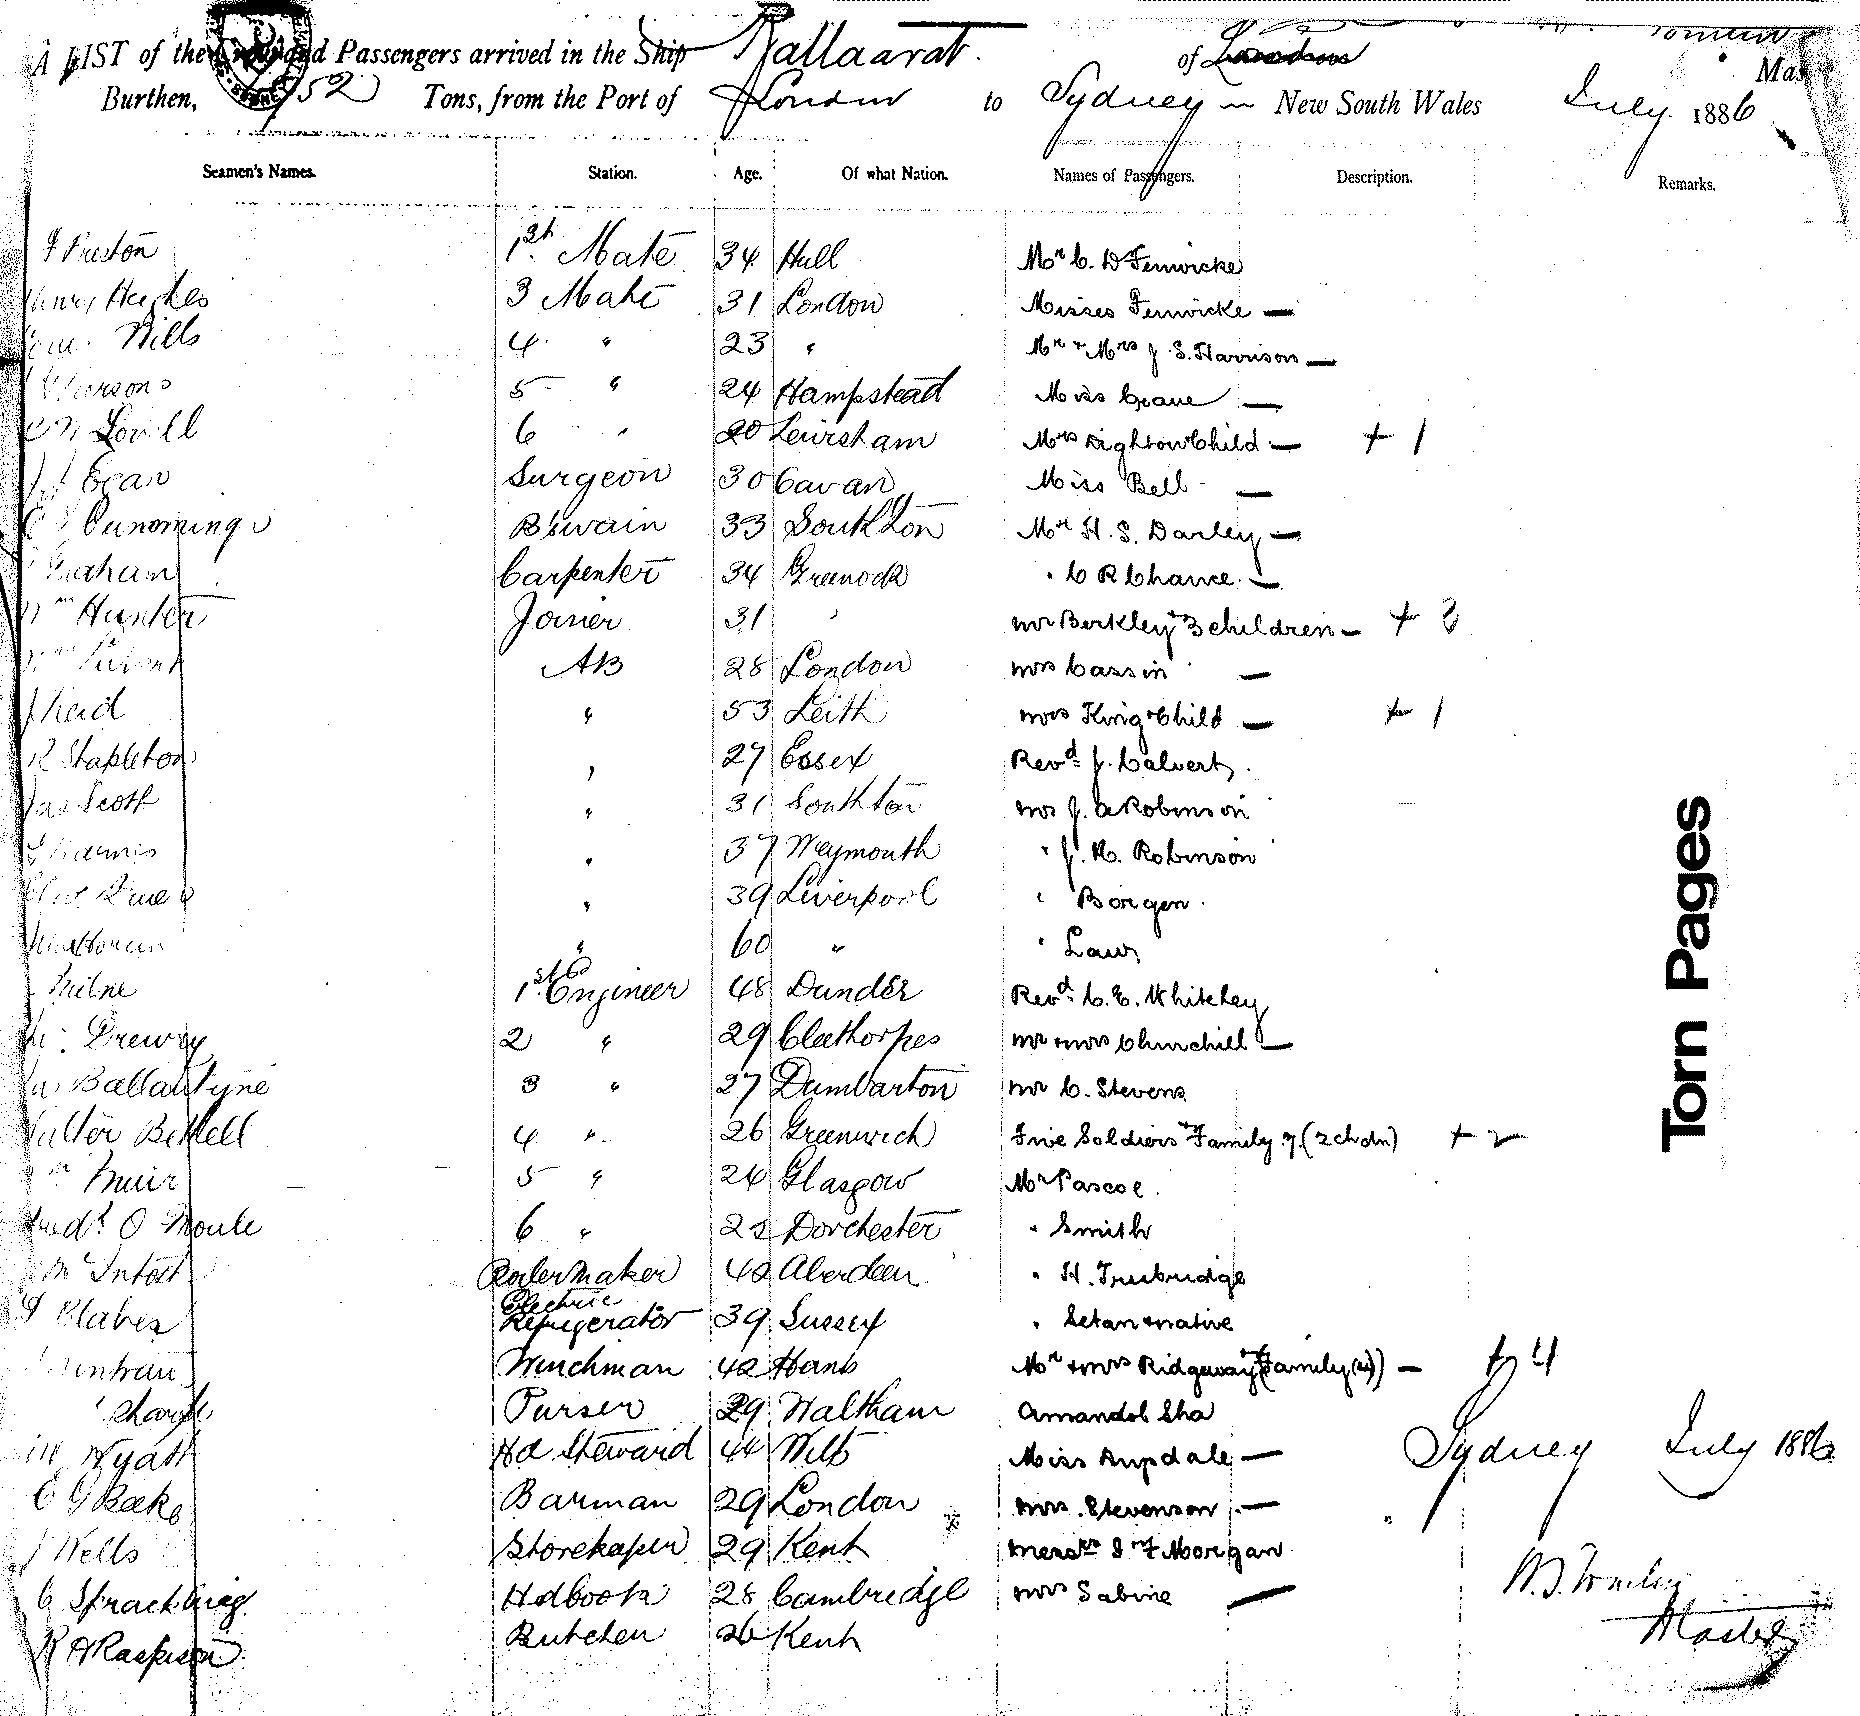 A LIST of the Crew and Passengers arrived in the Ship Ballaarat of London
Mas
Burthen, 752 Tons, from the Port of London to Sydney in New South Wales July 1886
Seamen's Names. Station. Age. Of what Nation. Names of Passengers. Description. Remarks.
Preston 1st Mate 34 Hull Mr C. D Fenwicke
Henry Hughes 3 Mate 31 London Misses Fenwicke —
Wills 4 " 23 " Mr + Mrs J. S. Harrison —
Parsons 5 " 24 Hampstead Miss Crane —
Lovell 6 " 20 Lewisham Mrs Dighton + Child — + 1
Egan Surgeon 30 Cavan Miss Bell —
B'swain 33 Southton Mr H. S. Darley —
Graham Carpenter 34 Greenock " C R Chance —
Wm Hunter Joiner 31 " Mr Berkley + 3 children — + 3
AB 28 London Mrs Cassin —
J Reid " 53 Leith Mrs King + Child — + 1
R Stapleton " 27 Essex Revd J. Calvert
Jas Scott " 31 Southton Mrs J. A Robinson
" 37 Weymouth " J. H. Robinson
" 39 Liverpool " Borgen
" 60 " " Law
Milne 1st Engineer 48 Dundee Revd C. E. Whiteley
Drewry 2 " 29 Cleethorpes Mr + Mrs Churchill —
Ballantyne 3 " 27 Dumbarton Mr C. Stevens
Walter Bethell 4 " 26 Greenwich Five Soldiers + Family 7 (2 chdn) + 2
Muir 5 " 24 Glasgow Mr Pascoe
Fredk O Moule 6 " 22 Dorchester " Smith
Boilermaker 42 Aberdeen " H. Truebridge
Electric
Refrigerator 39 Sussex " Setan + native
Winchman 42 Hants Mr + Mrs Ridgeway + Family (4) — + 4
Sharpe Purser 29 Waltham Amandol Sha
Wyatt Hd Steward 44 Wilts Miss Aspdale — Sydney July 1886
Barman 29 London Mrs Stevenson —
J Wells Storekeeper 29 Kent Messrs J + F Morgan
C Sprackling Hd Cook 28 Cambridge Mrs Sabine —
Butcher 26 Kent
Master
Torn Pages